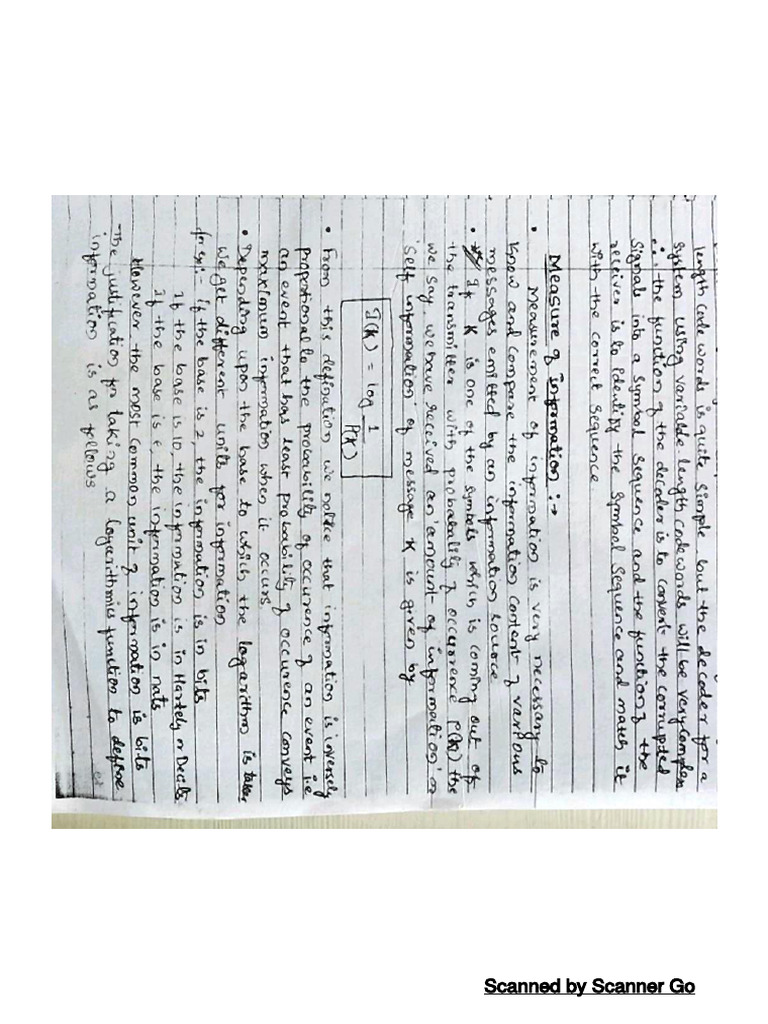 length code words is quite simple but the decoder for a
system using variable-length code words will be very complex
i.e. the function of the decoder is to convert the corrupted
signals into a symbol sequence and the function of the
receiver is to identify the symbol sequence and match it
with the correct sequence.
Measure of information :-
• Measurement of information is very necessary to
know and compare the information content of various
messages emitted by an information source
• If K is one of the symbols which is coming out of
the transmitter with probability of occurrence P(K) the
we say, we have received an 'amount of information' or
'self information' of message K is given by
I(K) = log 1/P(K)
• From this defination we notice that information is inversely
proportional to the probability of occurence of an event i.e
an event that has least probability of occurence conveys
maximum information when it occurs
• Depending upon the base to which the logarithm is taken
we get different units for information
for exp:- if the base is 2, the information is in bits
If the base is 10, the information is in Hartely or Decits
If the base is e, the information is in nats
However the most common unit of information is bits
-The justification for taking a logarithmics function to define
information is as follows
Scanned by Scanner Go